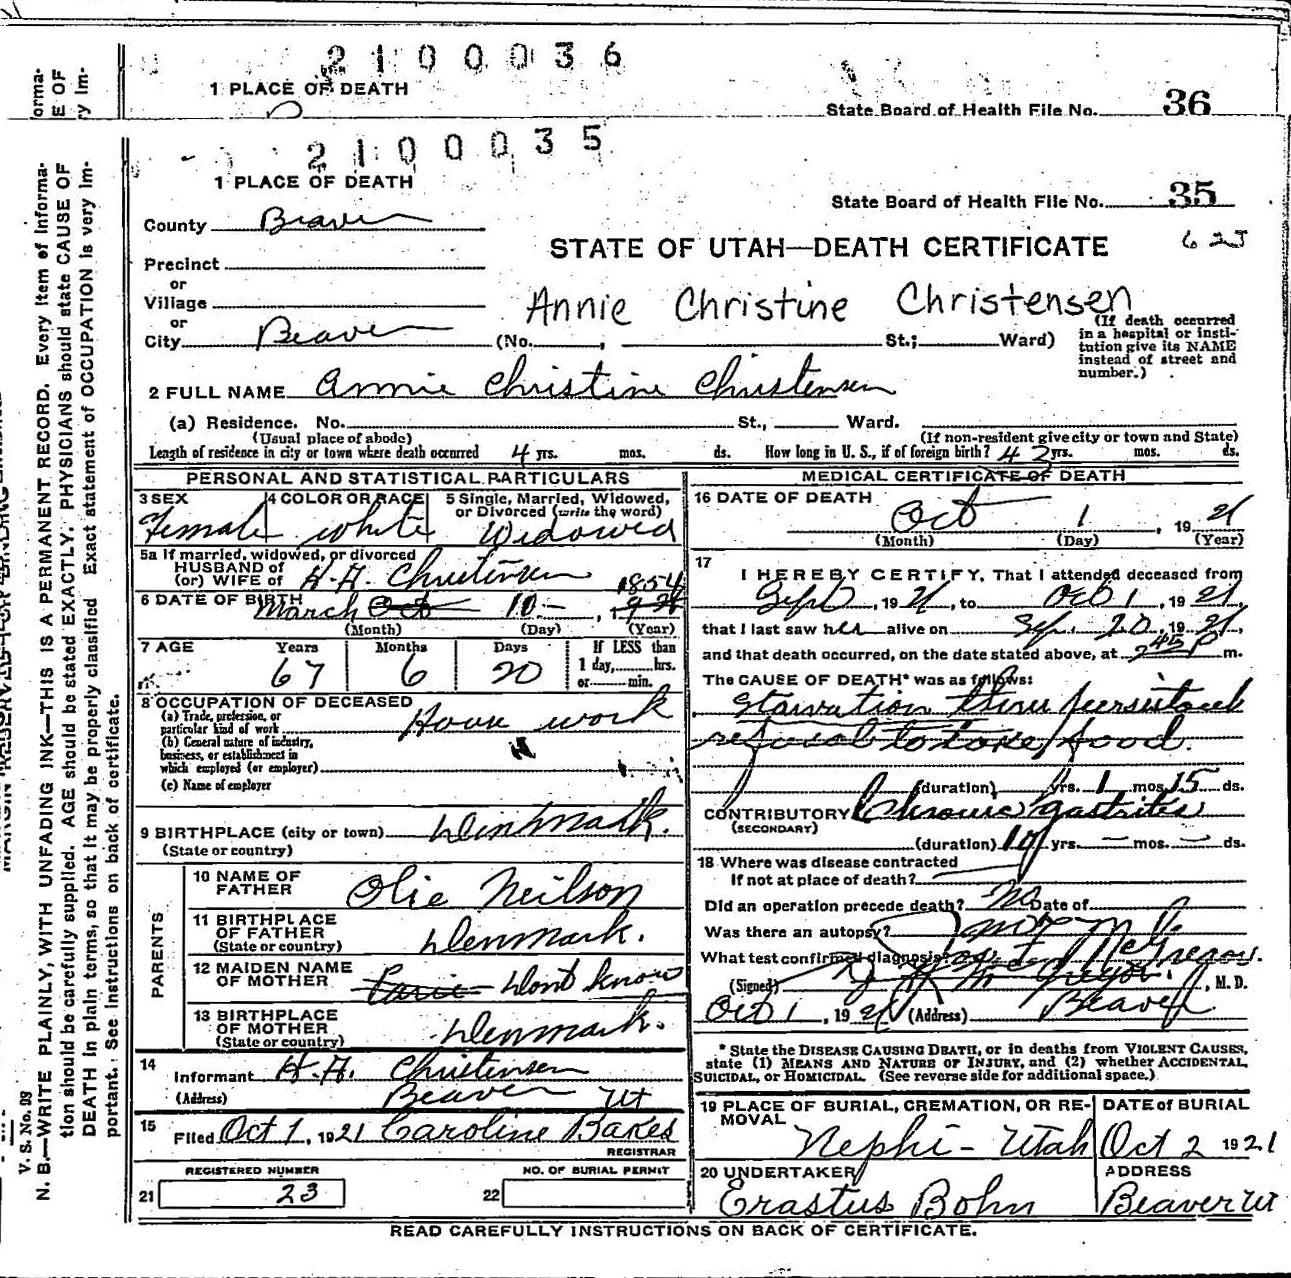 2100036
1 PLACE OF DEATH
State Board of Health File No. 36
orma-
E OF
ry Im-
2100035
1 PLACE OF DEATH
State Board of Health File No. 35
County Beaver
STATE OF UTAH—DEATH CERTIFICATE
625
Precinct
or
Village
Annie Christine Christensen
or
City Beaver
(No. ; St.; Ward)
(If death occurred
in a hospital or insti-
tution give its NAME
instead of street and
number.)
2 FULL NAME Annie Christine Christensen
(a) Residence. No. St., Ward.
(Usual place of abode)
(If non-resident give city or town and State)
Length of residence in city or town where death occurred 4 yrs. mos. ds. How long in U. S., if of foreign birth? 43 yrs. mos. ds.
PERSONAL AND STATISTICAL PARTICULARS
3 SEX
Female
4 COLOR OR RACE
white
5 Single, Married, Widowed,
or Divorced (write the word)
Widowed
5a If married, widowed, or divorced
HUSBAND of
(or) WIFE of H. H. Christensen
6 DATE OF BIRTH
March Oct 10 1854
(Month) (Day) (Year)
7 AGE
Years
67
Months
6
Days
20
If LESS than
1 day, hrs.
or min.
8 OCCUPATION OF DECEASED
(a) Trade, profession, or
particular kind of work House work
(b) General nature of industry,
business, or establishment in
which employed (or employer)
(c) Name of employer
9 BIRTHPLACE (city or town) Dentmark.
(State or country)
PARENTS
10 NAME OF
FATHER Olie Neilson
11 BIRTHPLACE
OF FATHER
(State or country) Denmark.
12 MAIDEN NAME
OF MOTHER Dont know
13 BIRTHPLACE
OF MOTHER
(State or country) Denmark.
14
Informant H. H. Christensen
(Address) Beaver Ut
15
Filed Oct 1, 1921 Caroline Bakes
REGISTRAR
REGISTERED NUMBER
21 23
NO. OF BURIAL PERMIT
22
MEDICAL CERTIFICATE OF DEATH
16 DATE OF DEATH
Oct 1, 1921
(Month) (Day) (Year)
17
I HEREBY CERTIFY, That I attended deceased from
Sept, 1921, to Oct 1, 1921,
that I last saw her alive on Sep. 20, 1921,
and that death occurred, on the date stated above, at m.
The CAUSE OF DEATH* was as follows:
Starvation thru persistent
refusal to take food.
(duration) yrs. 1 mos. 15 ds.
CONTRIBUTORY Chronic gastritis
(SECONDARY)
(duration) 10 yrs. — mos. — ds.
18 Where was disease contracted
If not at place of death?
Did an operation precede death? No Date of
Was there an autopsy? no
What test confirmed diagnosis?
(Signed) McGregor, M. D.
Oct 1, 1921 (Address) Beaver
* State the DISEASE CAUSING DEATH, or in deaths from VIOLENT CAUSES,
state (1) MEANS AND NATURE OF INJURY, and (2) whether ACCIDENTAL,
SUICIDAL, or HOMICIDAL. (See reverse side for additional space.)
19 PLACE OF BURIAL, CREMATION, OR RE-
MOVAL
Nephi - Utah
DATE of BURIAL
Oct 2 1921
20 UNDERTAKER
Erastus Bohn
ADDRESS
Beaver Ut
READ CAREFULLY INSTRUCTIONS ON BACK OF CERTIFICATE.
V. S. No. 93
N. B.—WRITE PLAINLY, WITH UNFADING INK—THIS IS A PERMANENT RECORD. Every item of Informa-
tion should be carefully supplied. AGE should be stated EXACTLY. PHYSICIANS should state CAUSE OF
DEATH in plain terms, so that it may be properly classified. Exact statement of OCCUPATION is very Im-
portant. See instructions on back of certificate.